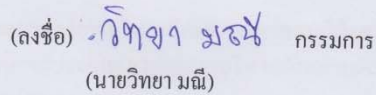 (ลงชื่อ) วิทยา มณี กรรมการ
(นายวิทยา มณี)